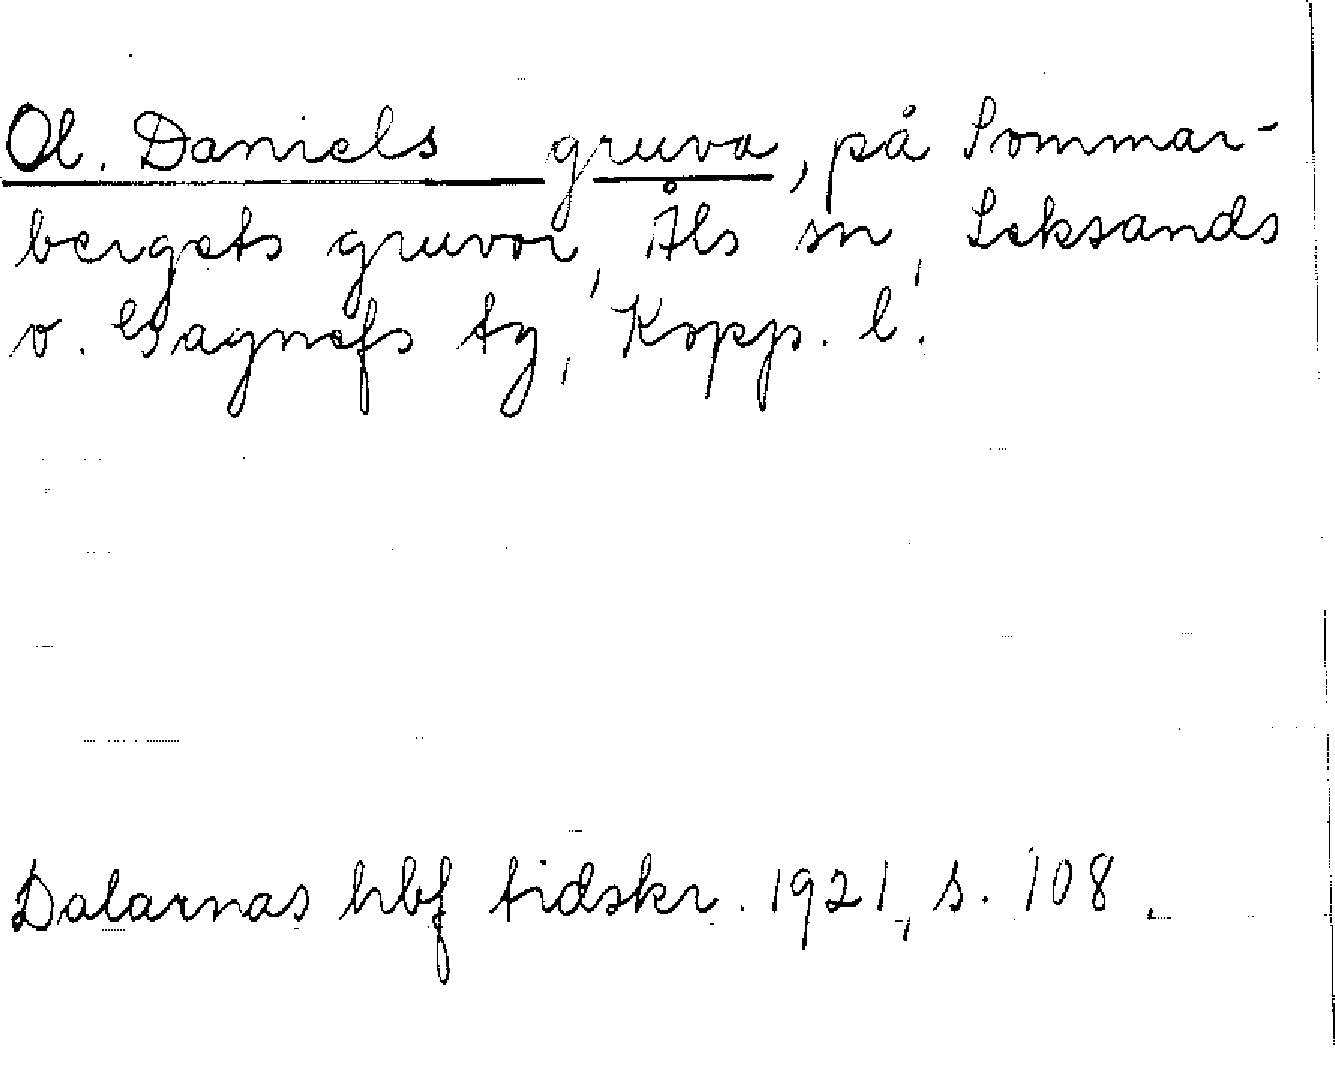 Ol. Daniels gruva, på Sommar-
bergets gruvor, Åls sn, Leksands
o. Gagnefs tg, Kopp. l.
Dalarnas hbf tidskr. 1921, s. 108.